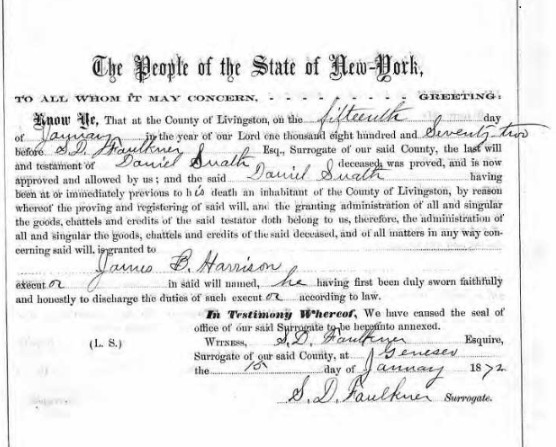 The People of the State of New-York,
TO ALL WHOM IT MAY CONCERN, - - - - - - - - GREETING:
Know Ye, That at the County of Livingston, on the fifteenth day
of January in the year of our Lord one thousand eight hundred and Seventy two
before S. D. Faulkner Esq., Surrogate of our said County, the last will
and testament of Daniel deceased was proved, and is now
approved and allowed by us; and the said Daniel having
been at or immediately previous to his death an inhabitant of the County of Livingston, by reason
whereof the proving and registering of said will, and the granting administration of all and singular
the goods, chattels and credits of the said testator doth belong to us, therefore, the administration of
all and singular the goods, chattels and credits of the said deceased, and of all matters in any way con-
cerning said will, is granted to
James B. Harrison
executor in said will named, he having first been duly sworn faithfully
and honestly to discharge the duties of such executor according to law.
In Testimony Whereof, We have caused the seal of
office of our said Surrogate to be hereunto annexed.
(L. S.) WITNESS, S. D. Faulkner Esquire,
Surrogate of our said County, at Geneseo
the 15 day of January 1872.
S. D. Faulkner Surrogate.